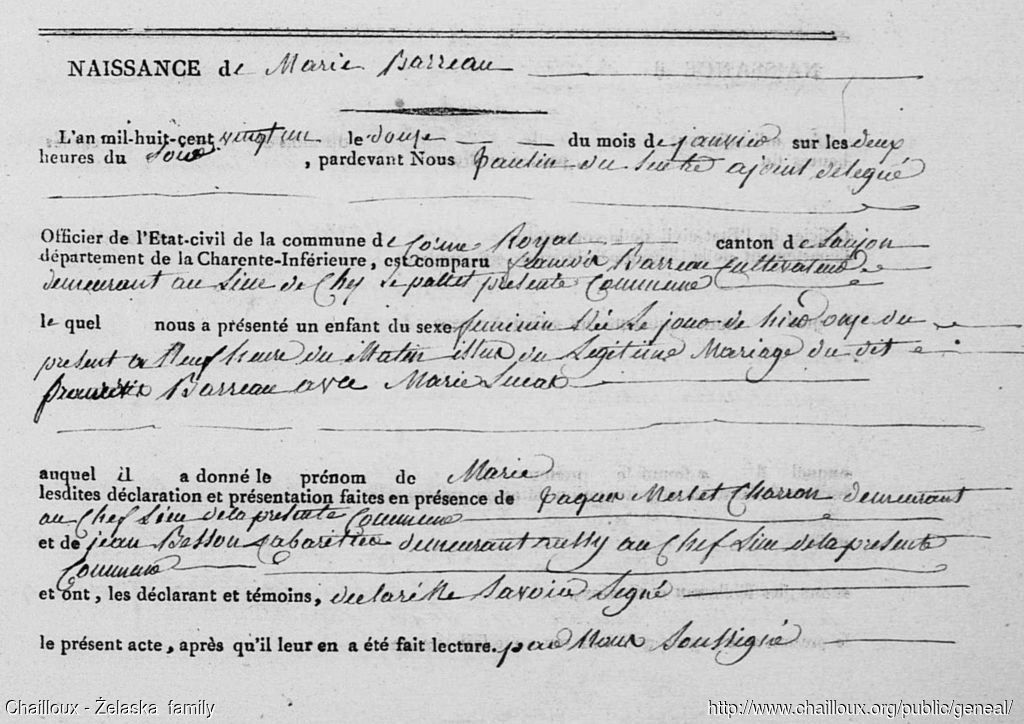 NAISSANCE de Marie Barreau
L'an mil-huit-cent vingt un le douze du mois de janvier sur les deux
heures du soir, pardevant Nous paulin du ajoint delegué
Officier de l'Etat-civil de la commune de Corme Royal canton de Saujon
département de la Charente-Inférieure, est comparu francois Barreau Cultivateur
demeurant au Lieu de Chez le pallet presente Commune
le quel nous a présenté un enfant du sexe feminin Née Le jour de hier onze du
present a Neuf heure du Matin issue du Legitime Mariage du dit
Barreau avec Marie
auquel il a donné le prénom de Marie
lesdites déclaration et présentation faites en présence de Merlet Charron demeurant
au Chef Lieu de la presente Commune
et de jean Besson Cabaretier demeurant au Chef Lieu de la presente
Commune
et ont, les déclarant et témoins, Savoir Signé
le présent acte, après qu'il leur en a été fait lecture. par Nous Soussigné
Chailloux - Żelaska family
http://www.chailloux.org/public/geneal/